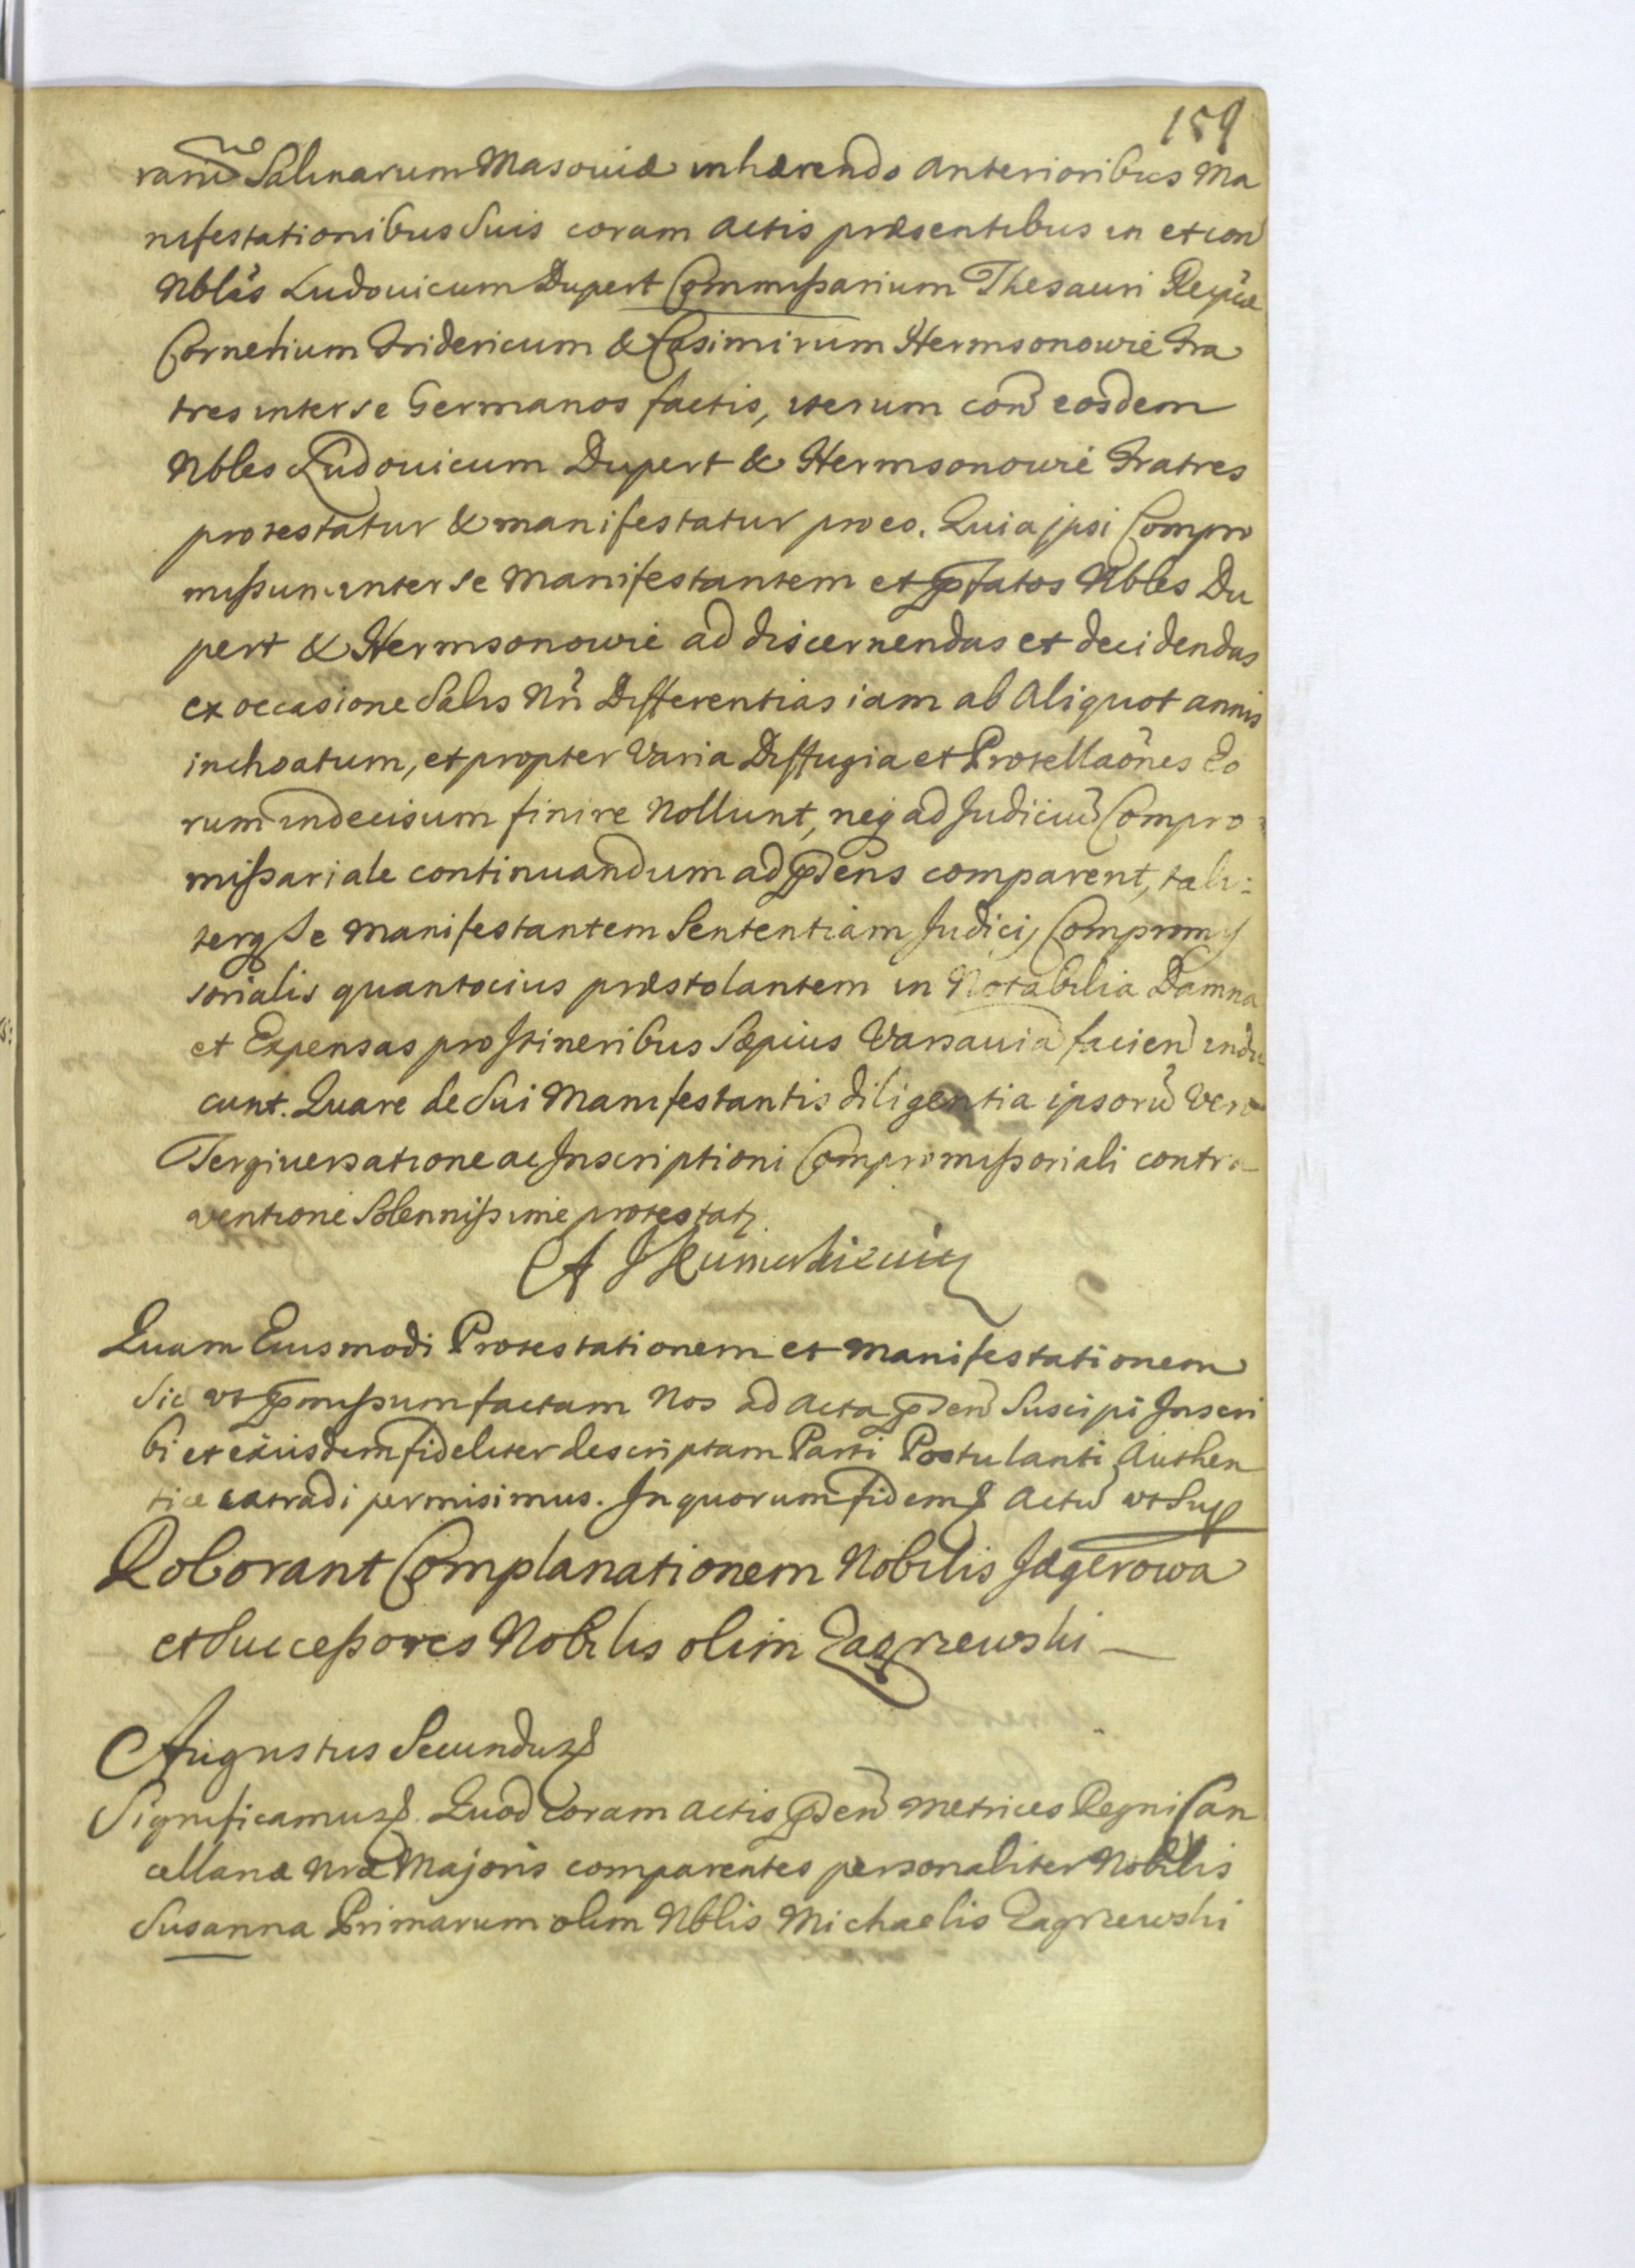 159
ranũ Salinarum Masoviæ inhærendo anterioribus Ma
nifestationibus Suis coram actis præsentibus in et con
Nbles Ludovicum Dupert Commißarium Thesauri Reipcæ
Cornelium Fridericum & Casimirum Hermsonowie Fra
tres inter se Germanos factis, iterum con eosdem
Nbles Ludovicum Dupert & Hermsonowie Fratres
protestatur & manifestatur pro eo. Quia jpsi Compro
mißum inter se Manifestantem et pfatos Nbles Du
pert & Hermsonowie ad discernendas et decidendas
ex occasione Salis Nri Differentias iam ab aliquot annis
inchoatum, et propter Varia Diffugia et Protellaões Eo
rum indecisum finire Nollunt, neq ad Judiciũ Compro
mißariale continuandum ad pdens comparent, tali:
terq Se Manifestantem Sententiam Judicij Compromis
sorialis quantocius præstolantem in Notabilia Damna
et Expensas pro Itineribus Sæpius Varsavia facien indu
cunt. Quare de Sui Manifestantis diligentia ipsorũ Vero
Tergiversatione ac Inscriptioni Compromißoriali contra
ventione Solennißime protestat
Quam Eiusmodi Protestationem et Manifestationem
Sic ut pmißum factam Nos ad Acta pden Suscipi Inscri
bi et eiusdem fideliter descriptam Parti Postulanti Authen
tice extradi permisimus. In quorum fidem Actũ ut Sup
Roborant Complanationem Nobilis Jægerowa
et Succeßores Nobilis olim Zagrzewski
Augustus Secundus
Significamus. Quod Coram actis pden Metrices Regni Can
cellariæ Nræ Majoris comparentes personaliter Nobilis
Susanna Primarum olim Nblis Michaelis Zagrzewski